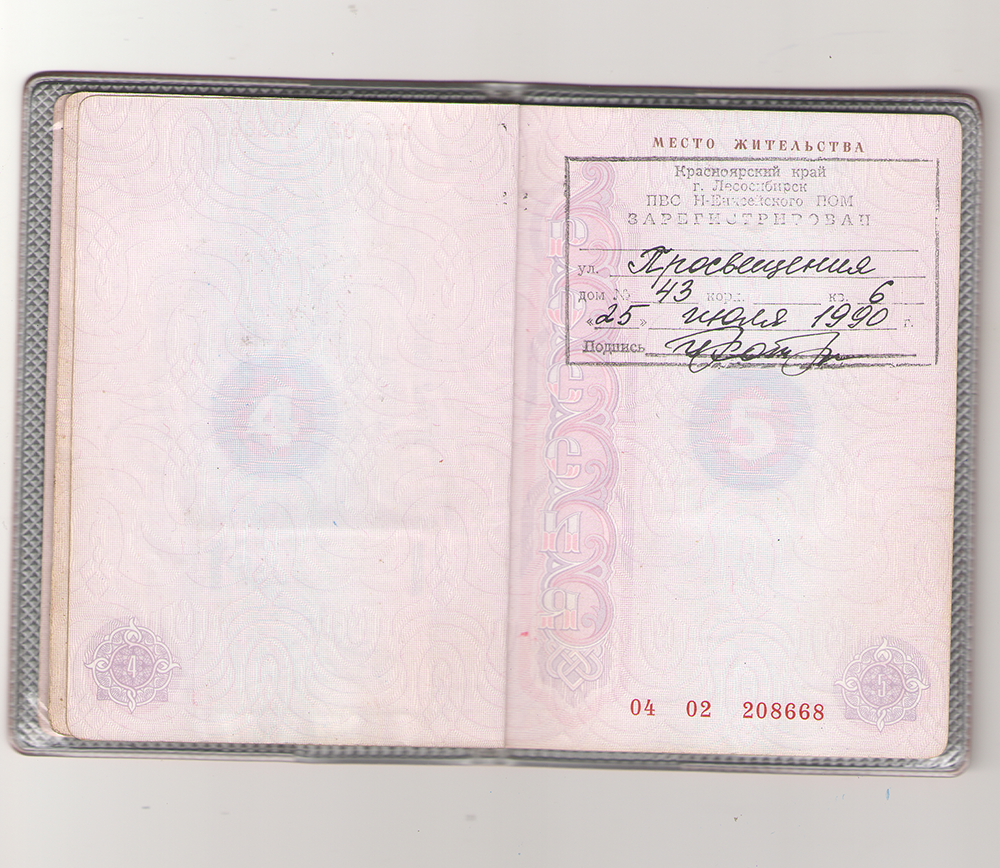 4
4
МЕСТО ЖИТЕЛЬСТВА
Красноярский край
г. Лесосибирск
ПВС Н-Енисейского ПОМ
ЗАРЕГИСТРИРОВАН
ул. Просвещения
дом № 43 корп. кв. 6
«25» июля 1990 г.
Подпись
5
РОССИЯ
04 02 208668
5